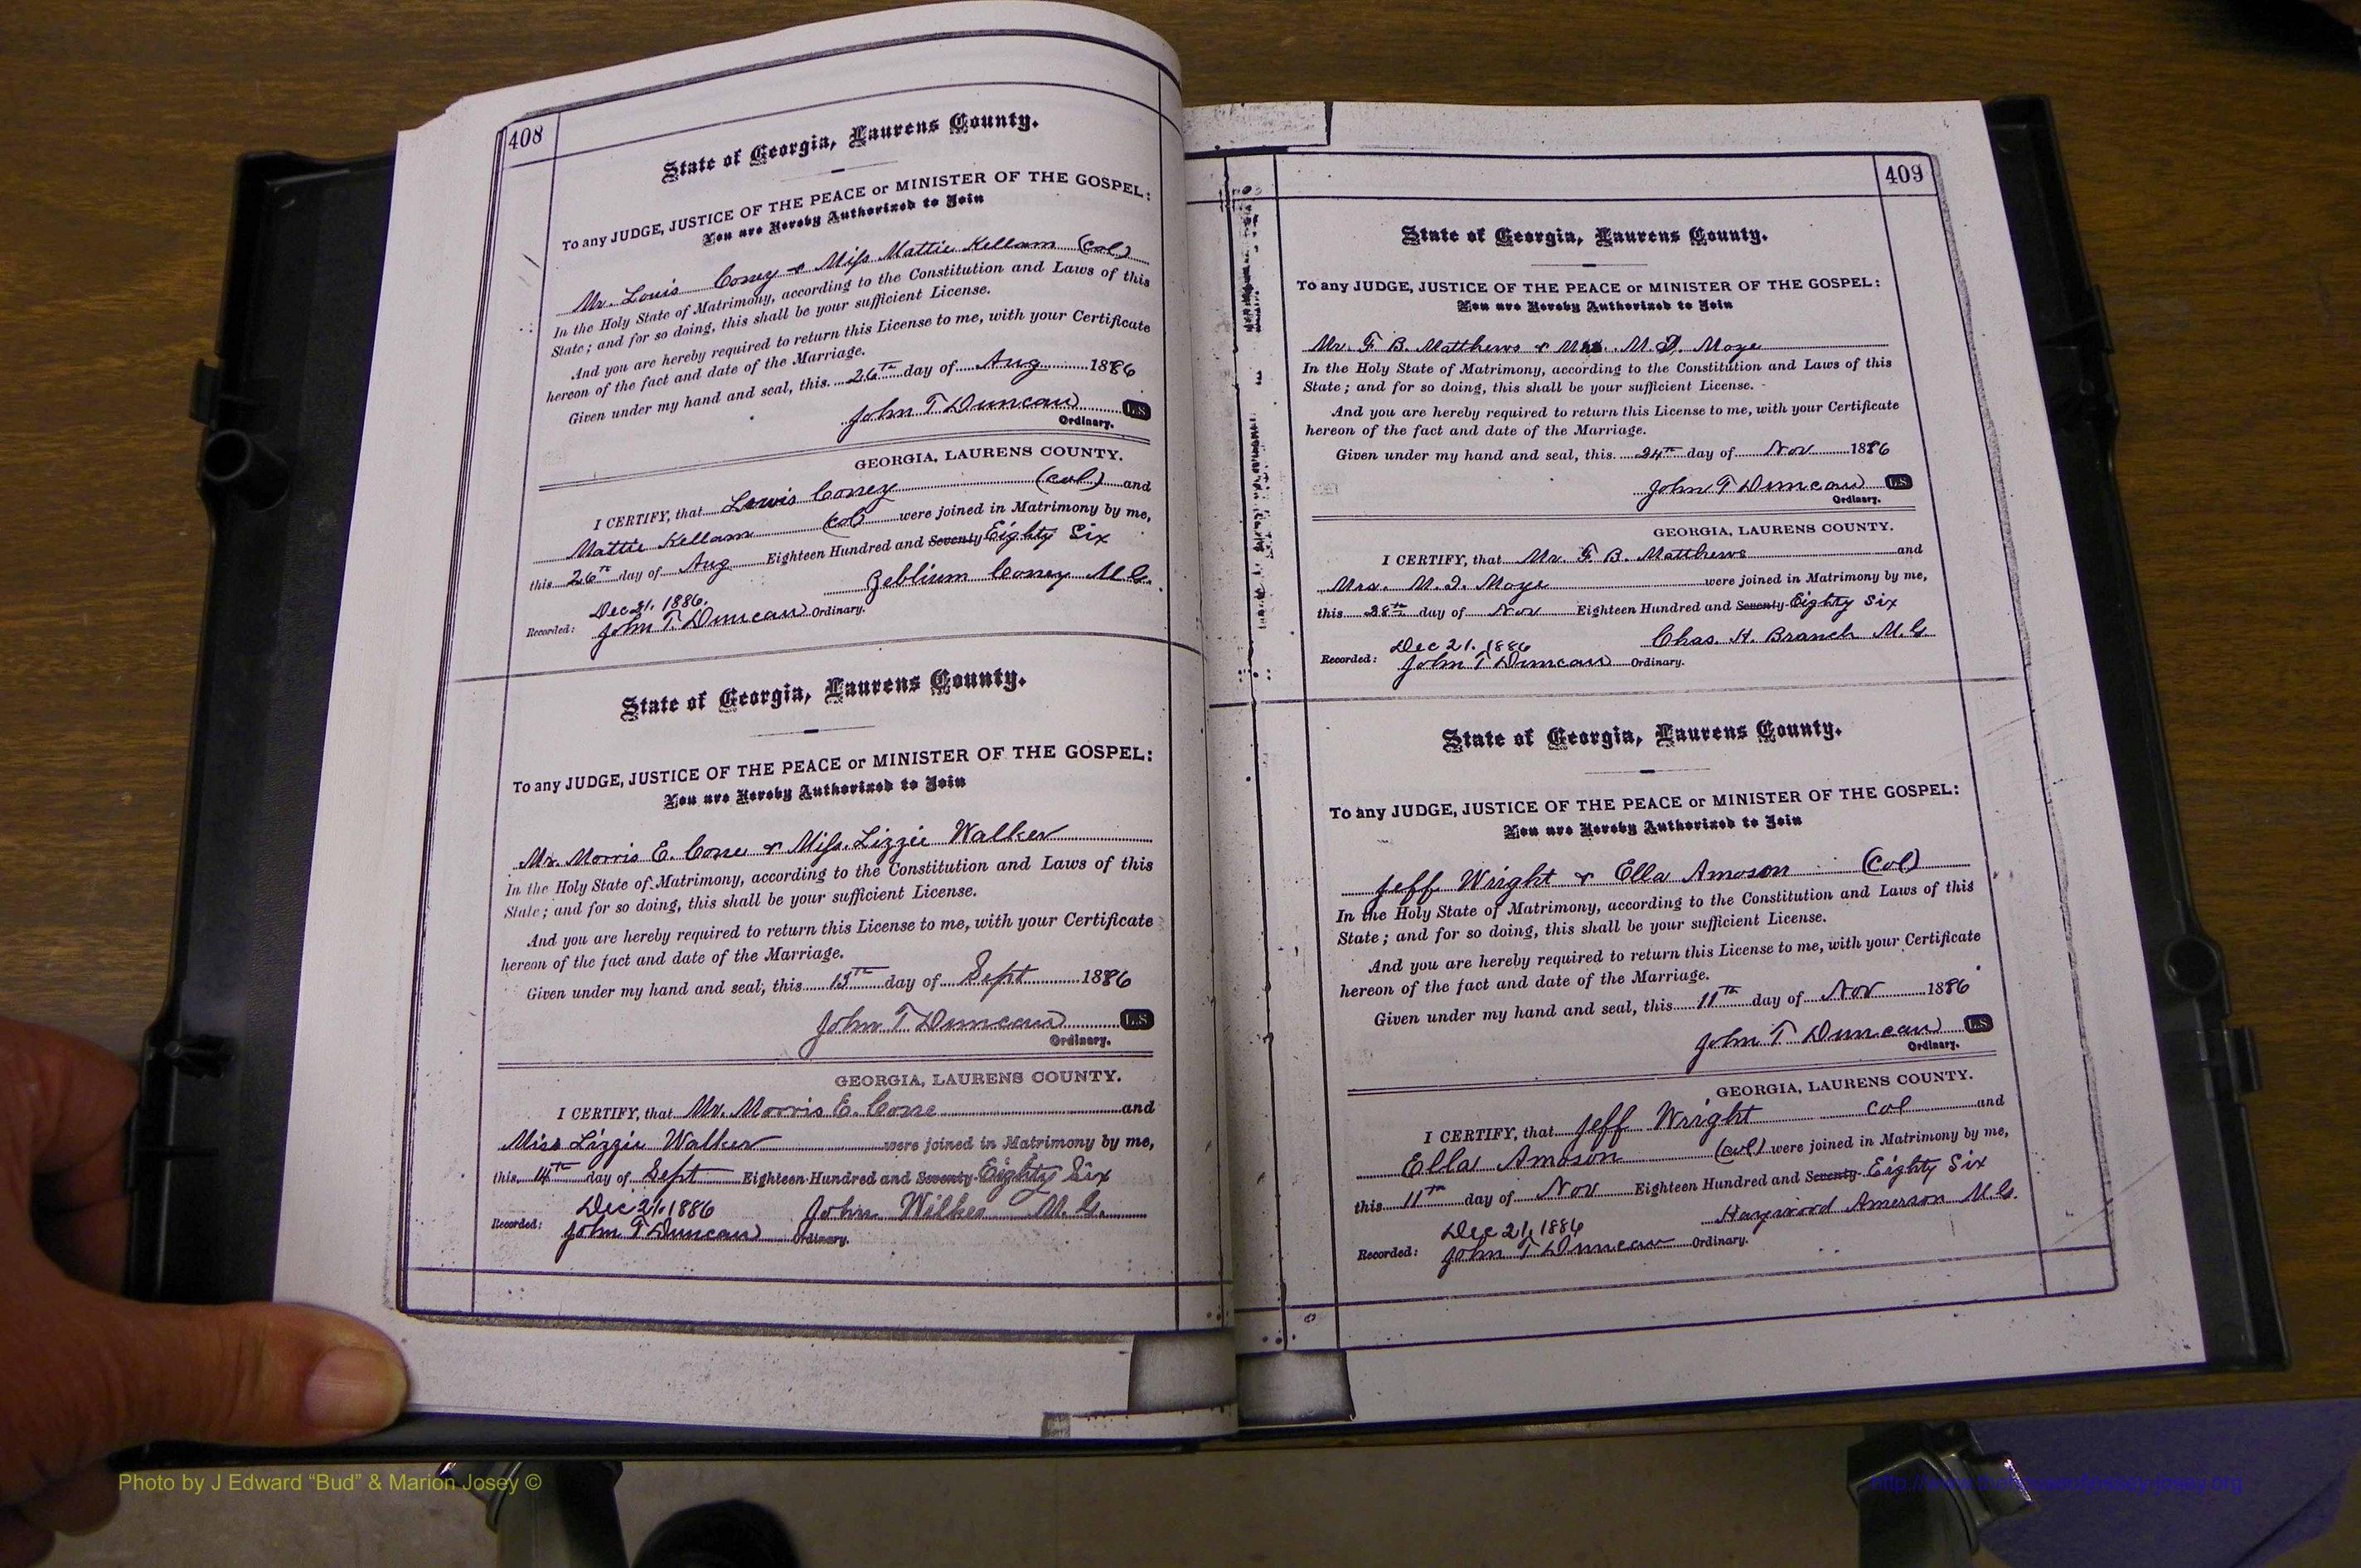 408
State of Georgia, Laurens County.
To any JUDGE, JUSTICE OF THE PEACE or MINISTER OF THE GOSPEL:
You are Hereby Authorized to Join
Mr. Louis Coney & Miss Mattie Kellam (col)
In the Holy State of Matrimony, according to the Constitution and Laws of this
State; and for so doing, this shall be your sufficient License.
And you are hereby required to return this License to me, with your Certificate
hereon of the fact and date of the Marriage.
Given under my hand and seal, this 26th day of Aug 1886
John T Duncan L.S.
Ordinary.
GEORGIA, LAURENS COUNTY.
I CERTIFY, that Lowis Coney (col) and
Mattie Kellam (col) were joined in Matrimony by me,
this 26th day of Aug Eighteen Hundred and Seventy Eighty Six
Coney M.G.
Dec 21. 1886.
Recorded: John T. Duncan Ordinary.
State of Georgia, Laurens County.
To any JUDGE, JUSTICE OF THE PEACE or MINISTER OF THE GOSPEL:
You are Hereby Authorized to Join
Mr. Morris E. Cone & Miss. Lizzie Walker
In the Holy State of Matrimony, according to the Constitution and Laws of this
State; and for so doing, this shall be your sufficient License.
And you are hereby required to return this License to me, with your Certificate
hereon of the fact and date of the Marriage.
Given under my hand and seal, this 13th day of Sept 1886
John T Duncan L.S.
Ordinary.
GEORGIA, LAURENS COUNTY.
I CERTIFY, that Mr. Morris E. Cone and
Miss Lizzie Walker were joined in Matrimony by me,
this 14th day of Sept Eighteen Hundred and Seventy Eighty Six
Dec 21. 1886 John Wilkes M.G.
Recorded: John T Duncan Ordinary.
409
State of Georgia, Laurens County.
To any JUDGE, JUSTICE OF THE PEACE or MINISTER OF THE GOSPEL:
You are Hereby Authorized to Join
Mr. F. B. Matthews & Mrs. M. D. Moye
In the Holy State of Matrimony, according to the Constitution and Laws of this
State; and for so doing, this shall be your sufficient License.
And you are hereby required to return this License to me, with your Certificate
hereon of the fact and date of the Marriage.
Given under my hand and seal, this 24th day of Nov 1886
John T Duncan L.S.
Ordinary.
GEORGIA, LAURENS COUNTY.
I CERTIFY, that Mr. F. B. Matthews and
Mrs. M. Moye were joined in Matrimony by me,
this 28th day of Nov Eighteen Hundred and Seventy Eighty Six
Dec 21. 1886 Chas. H. Branch M.G.
Recorded: John T Duncan Ordinary.
State of Georgia, Laurens County.
To any JUDGE, JUSTICE OF THE PEACE or MINISTER OF THE GOSPEL:
You are Hereby Authorized to Join
Jeff Wright & Ella Amason (Col)
In the Holy State of Matrimony, according to the Constitution and Laws of this
State; and for so doing, this shall be your sufficient License.
And you are hereby required to return this License to me, with your Certificate
hereon of the fact and date of the Marriage.
Given under my hand and seal, this 11th day of Nov 1886
John T Duncan L.S.
Ordinary.
GEORGIA, LAURENS COUNTY.
I CERTIFY, that Jeff Wright col and
Ella Amason (col) were joined in Matrimony by me,
this 11th day of Nov Eighteen Hundred and Seventy Eighty Six
Haywood Amerson M.G.
Dec 21, 1886
Recorded: John T Duncan Ordinary.
Photo by J Edward “Bud” & Marion Josey ©